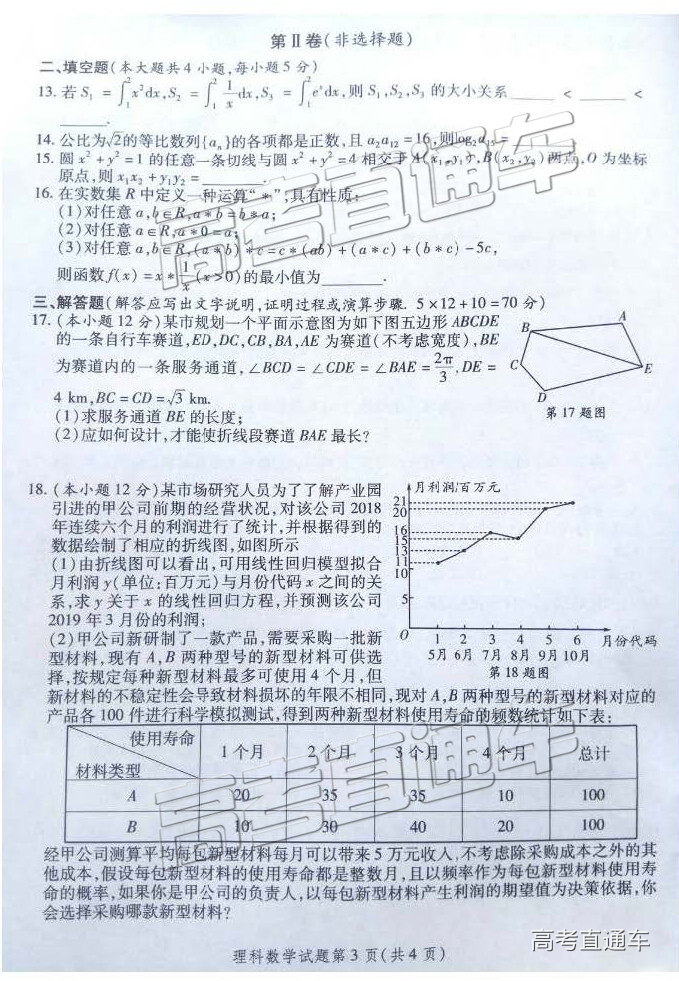 第Ⅱ卷(非选择题)
二、填空题(本大题共4小题,每小题5分)
13. 若 S₁ = ∫₁² x²dx, S₂ = ∫₁² 1/x dx, S₃ = ∫₁² eˣdx, 则 S₁, S₂, S₃ 的大小关系______ < ______ <
______.
14. 公比为√2的等比数列{aₙ}的各项都是正数,且 a₂a₁₂ = 16, 则log₂a₁₅ = ______.
15. 圆 x² + y² = 1 的任意一条切线与圆 x² + y² = 4 相交于 A(x₁,y₁), B(x₂,y₂)两点, O 为坐标
原点,则 x₁x₂ + y₁y₂ = ______.
16. 在实数集 R 中定义一种运算“ * ”,具有性质:
(1)对任意 a,b∈R, a * b = b * a;
(2)对任意 a∈R, a * 0 = a;
(3)对任意 a,b∈R, (a * b) * c = c * (ab) + (a * c) + (b * c) - 5c,
则函数 f(x) = x * 1/x (x > 0)的最小值为______.
三、解答题(解答应写出文字说明,证明过程或演算步骤. 5×12+10=70分)
17. (本小题12分)某市规划一个平面示意图为如下图五边形 ABCDE
的一条自行车赛道,ED,DC,CB,BA,AE 为赛道(不考虑宽度),BE
为赛道内的一条服务通道,∠BCD = ∠CDE = ∠BAE = 2π/3, DE =
4 km, BC = CD = √3 km.
(1)求服务通道 BE 的长度;
(2)应如何设计,才能使折线段赛道 BAE 最长?
A
B
C
E
D
第17题图
18. (本小题12分)某市场研究人员为了了解产业园
引进的甲公司前期的经营状况,对该公司2018
年连续六个月的利润进行了统计,并根据得到的
数据绘制了相应的折线图,如图所示
(1)由折线图可以看出,可用线性回归模型拟合
月利润 y(单位:百万元)与月份代码 x 之间的关
系,求 y 关于 x 的线性回归方程,并预测该公司
2019年3月份的利润;
(2)甲公司新研制了一款产品,需要采购一批新
型材料,现有 A,B 两种型号的新型材料可供选
择,按规定每种新型材料最多可使用4个月,但
月利润/百万元
21
20
16
15
13
11
10
5
O 1 2 3 4 5 6 月份代码
5月 6月 7月 8月 9月 10月
第18题图
新材料的不稳定性会导致材料损坏的年限不相同,现对 A,B 两种型号的新型材料对应的
产品各100件进行科学模拟测试,得到两种新型材料使用寿命的频数统计如下表:
使用寿命 1个月 2个月 3个月 4个月 总计
材料类型
A 20 35 35 10 100
B 10 30 40 20 100
经甲公司测算平均每包新型材料每月可以带来5万元收入,不考虑除采购成本之外的其
他成本,假设每包新型材料的使用寿命都是整数月,且以频率作为每包新型材料使用寿
命的概率,如果你是甲公司的负责人,以每包新型材料产生利润的期望值为决策依据,你
会选择采购哪款新型材料?
理科数学试题第3页(共4页)
高考直通车
高考直通车
高考直通车